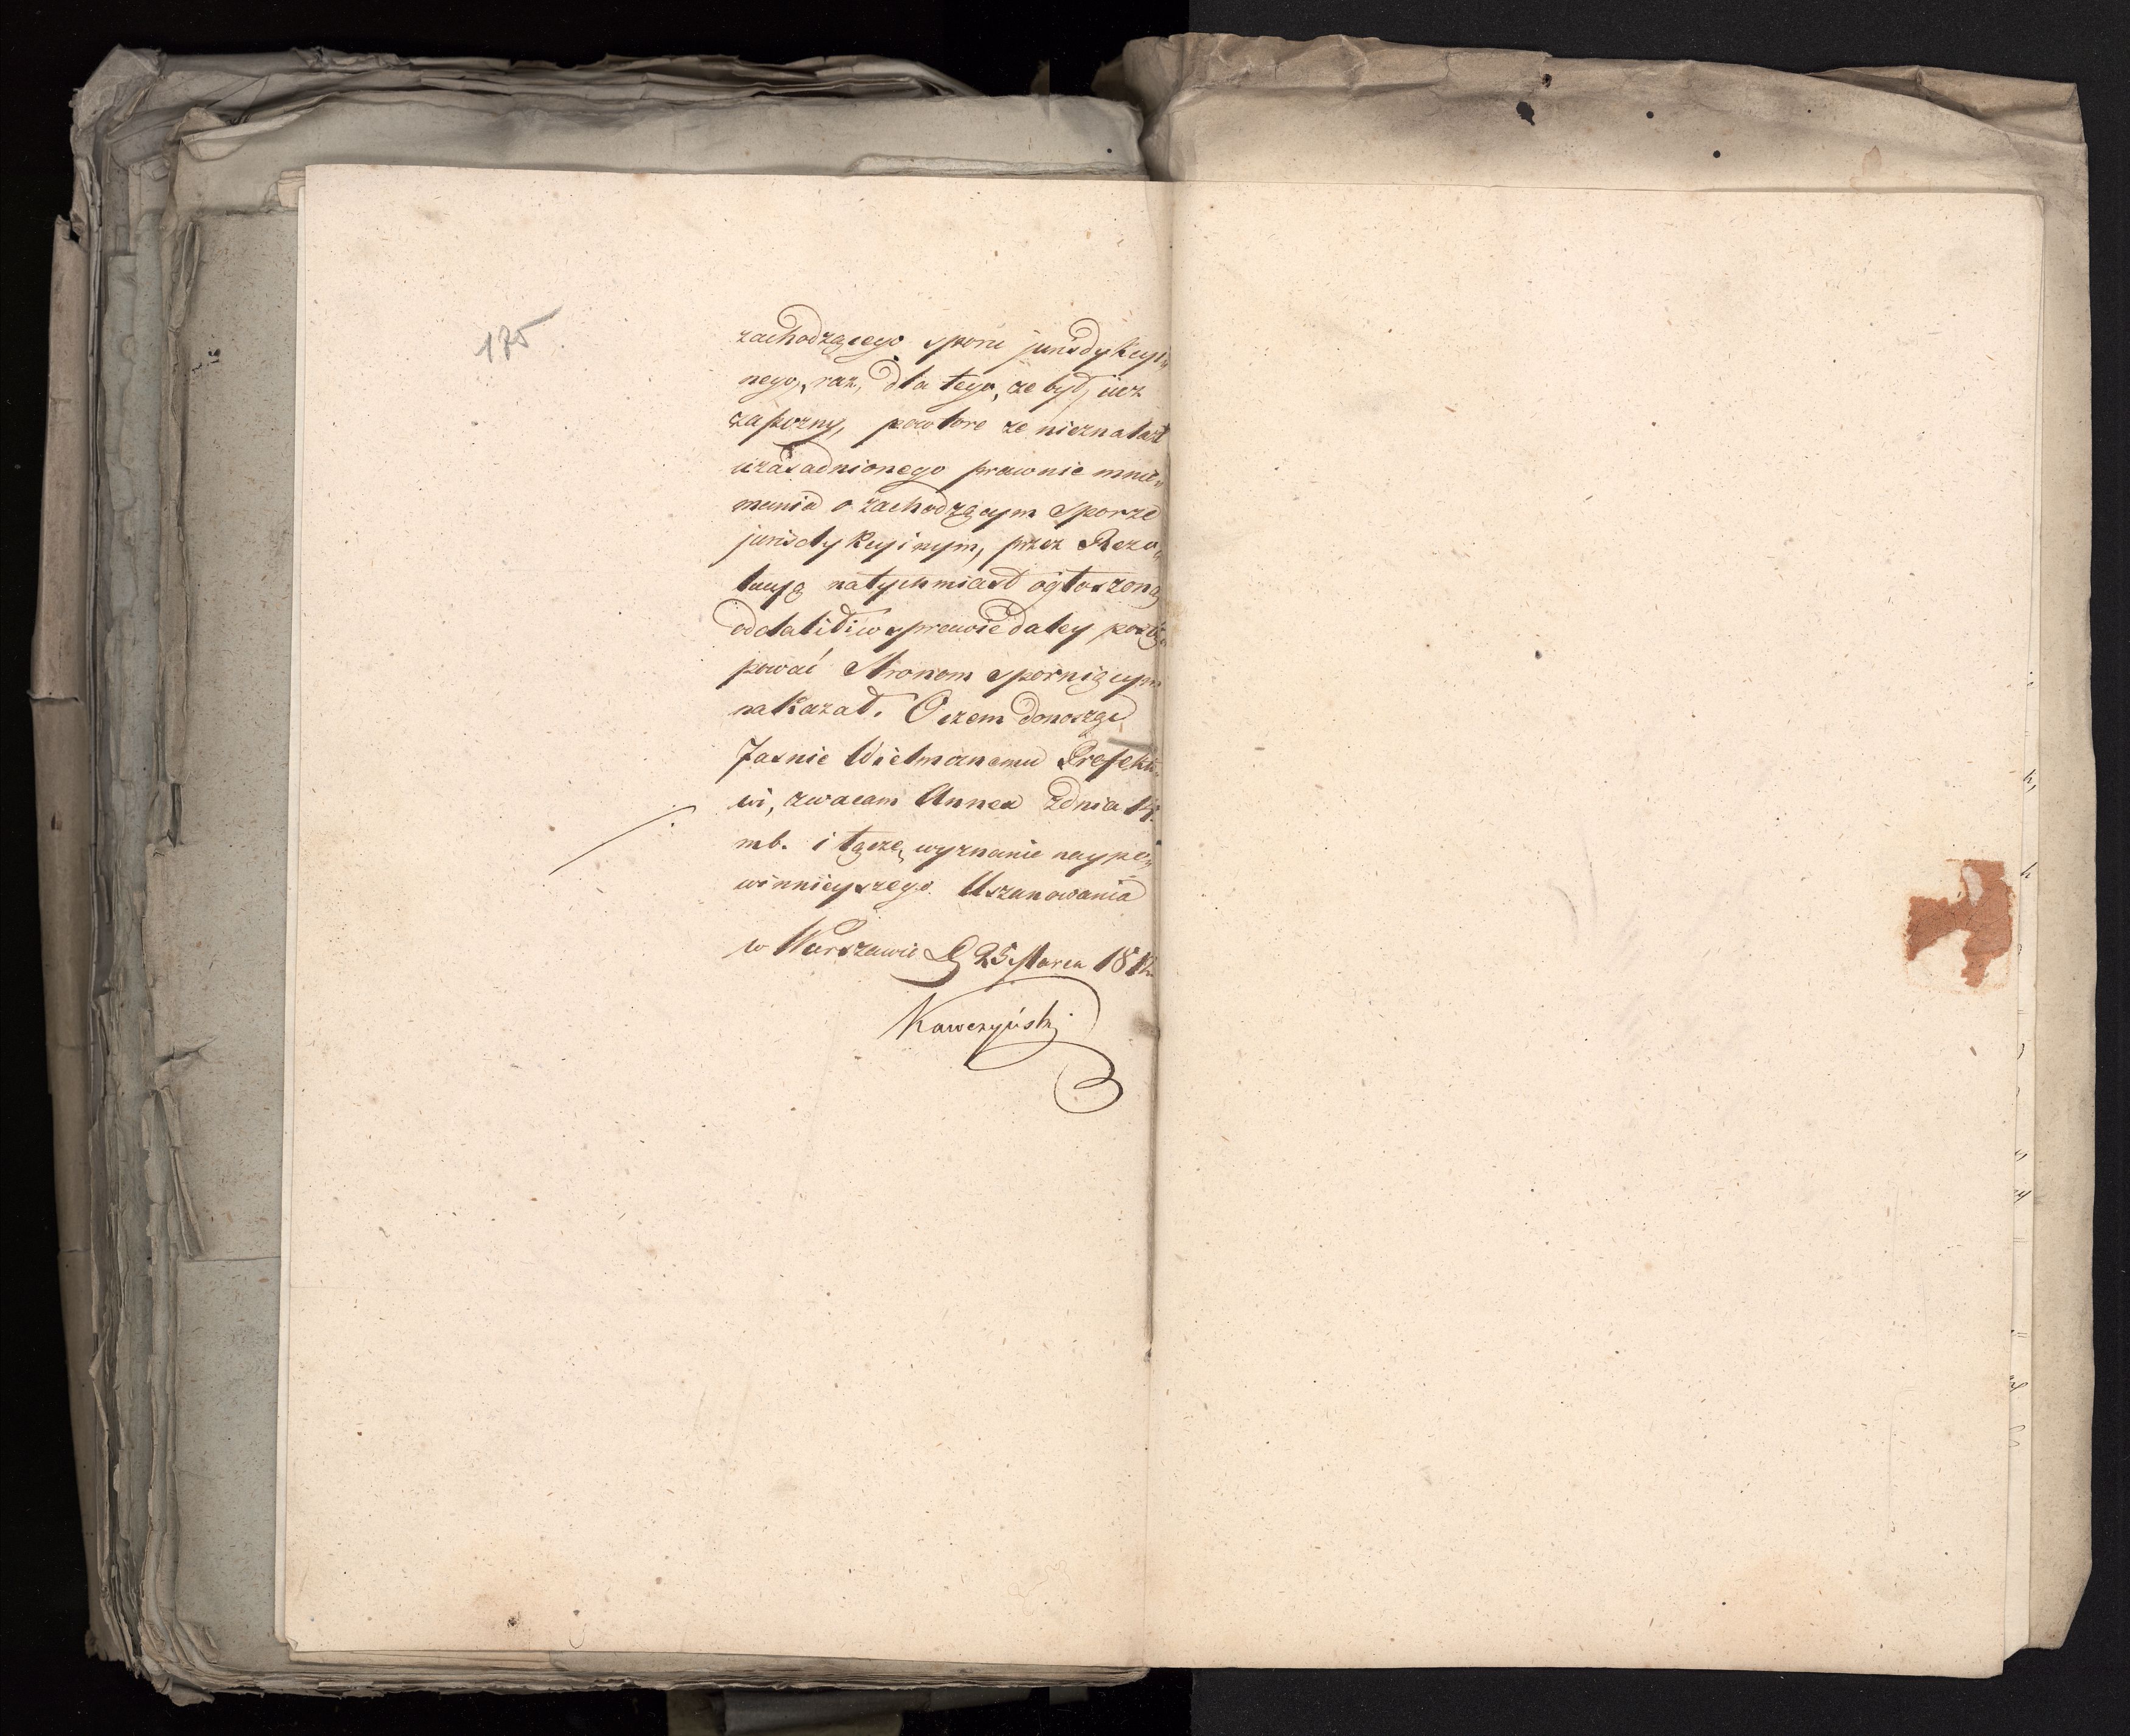 175
zachodzącego sporu jurisdykcyi„
nego, raz, dla tego, że był iuż
zapozny, powtore że nieznalazł
uzasadnionego prawnie mnie„
mania o zachodzącym Sporze
jurisdykcyinym, przez Rezo„
lucyą natychmiast ogłoszoną
oddalił i w sprawie daley postę„
pować Stronom sporniącym
nakazał. O czem donosząc
Jasnie Wielmożnemu Prefekto„
wi, zwracam Annex z dnia 14.
mb. i łączę wyznanie naypo„
winnieyszego Uszanowania
w Warszawie D 25 Marca 1812
Kawczyński